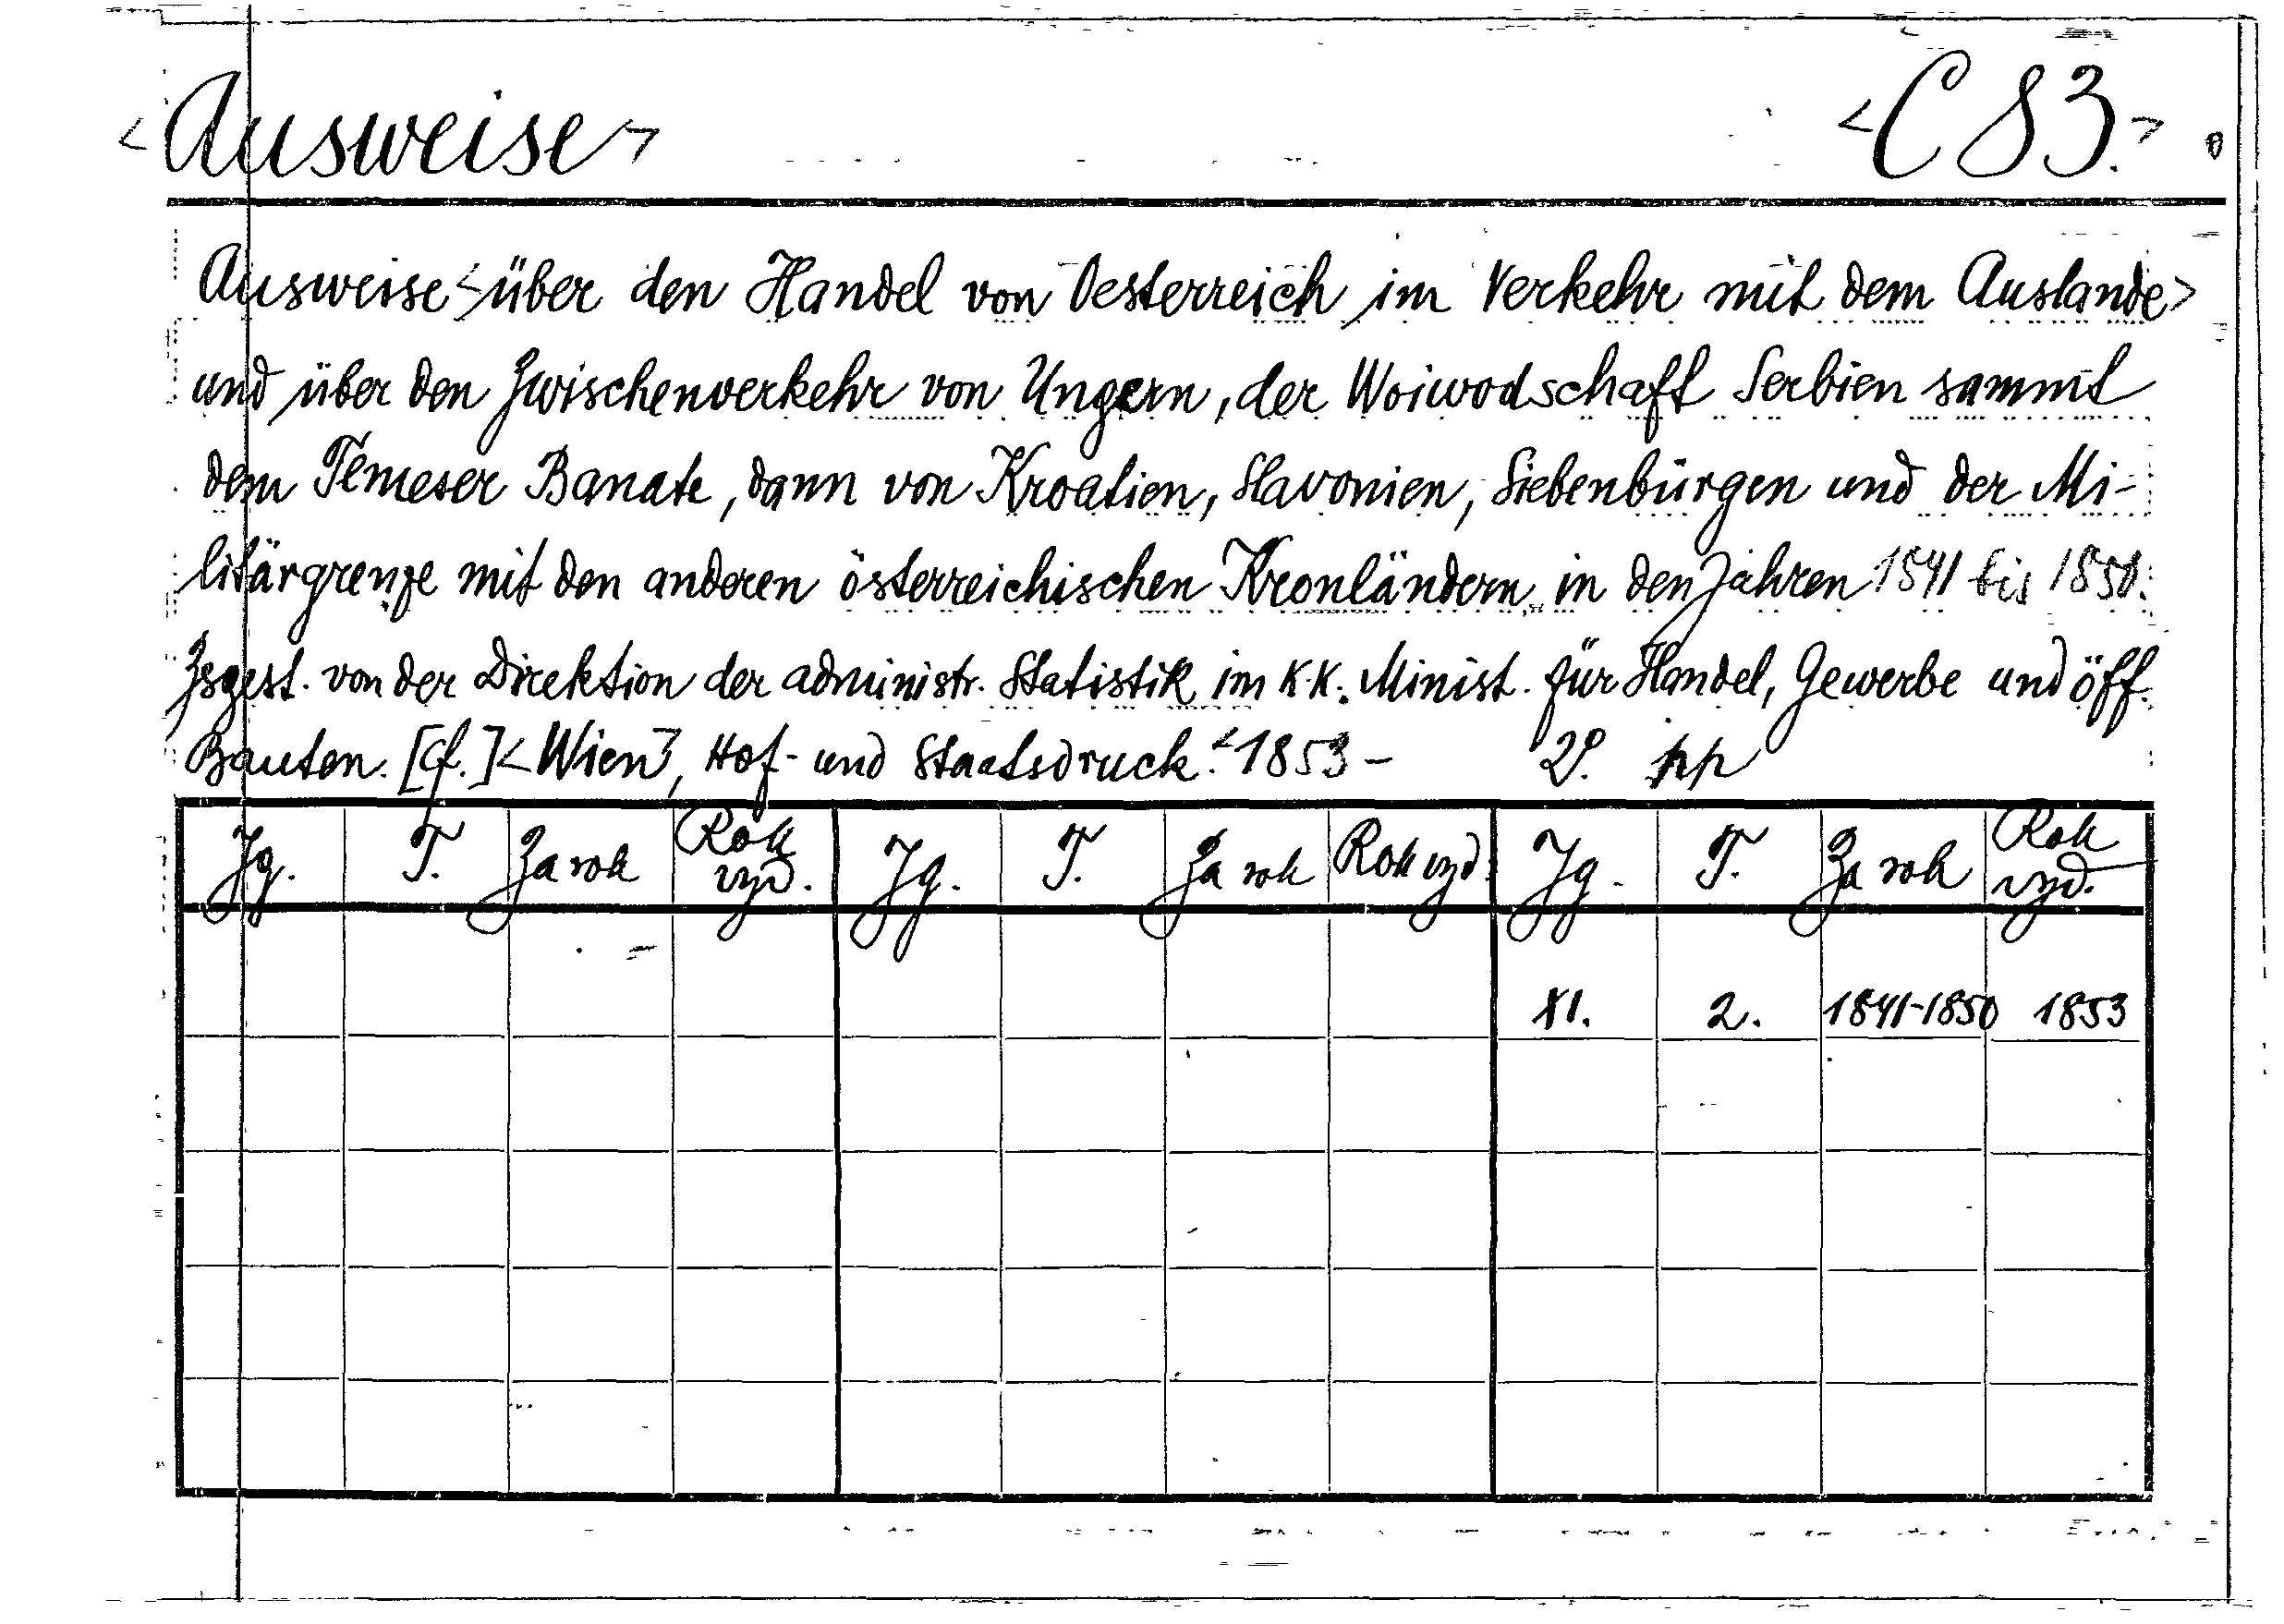 <Ausweise> <C 83.>
Ausweise <über den Handel von Oesterreich im Verkehr mit dem Auslande>
und über den Zwischenverkehr von Ungern, der Woiwodschaft Serbien sammt
dem Temeser Banate, dann von Kroatien, Slavonien, Siebenbürgen und der Mi-
litärgrenze mit den anderen österreichischen Kronländern in den Jahren 1841 bis 1850.
Zsgest. von der Direktion der administr. Statistik im k.k. Minist. für Handel, Gewerbe und öff.
Bauten. [Cf.] <Wien>, Hof- und Staatsdruck. <1853- 2° pp
Jg. T. Za rok Rok vyd. Jg. T. Za rok Rok vyd. Jg. T. Za rok Rok vyd.
XI. 2. 1841-1850 1853